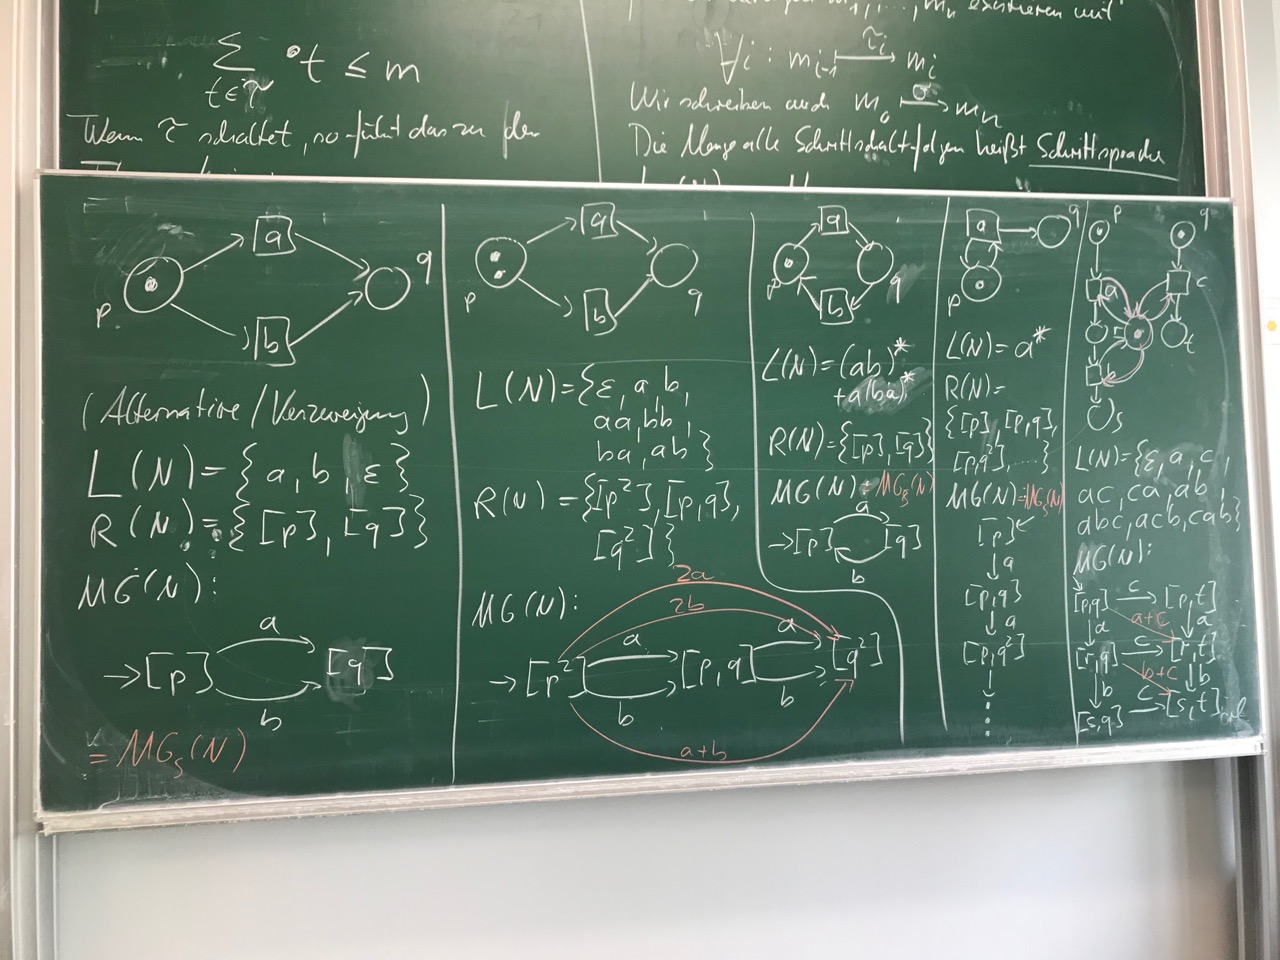 ∑ •t ≤ m
t∈τ
Wenn τ schaltet, so führt das zu den
m₁,…,mₙ existieren mit
∀i : mᵢ₋₁ —τᵢ→ mᵢ
Wir schreiben auch m₀ —σ→ mₙ
Die Menge alle Schrittschaltfolgen heißt Schrittsprache
a
p
q
b
(Alternative/Verzweigung)
L(N)={a,b,ε}
R(N)={[p],[q]}
MG(N):
a
→[p] [q]
b
= MG_S(N)
a
p
q
b
L(N)={ε,a,b,
aa,bb,
ba,ab}
R(N)={[p²],[p,q],
[q²]}
MG(N):
2a
2b
a a
→[p²] [p,q] [q²]
b b
a+b
a
p
q
b
L(N)=(ab)*
+a(ba)*
R(N)={[p],[q]}
MG(N)=MG_S(N)
a
→[p] [q]
b
a
q
p
L(N)=a*
R(N)=
{[p],[p,q],
[p,q²],...}
MG(N)=MG_S(N)
[p]
↓a
[p,q]
↓a
[p,q²]
↓
⋮
p
q
a
c
r
t
b
s
L(N)={ε,a,c,
ac,ca,ab,
abc,acb,cab}
MG(N):
[p,q] —c→ [p,t]
↓a a+c ↓a
[r,q] —c→ [r,t]
↓b b+c ↓b
[s,q] —c→ [s,t]